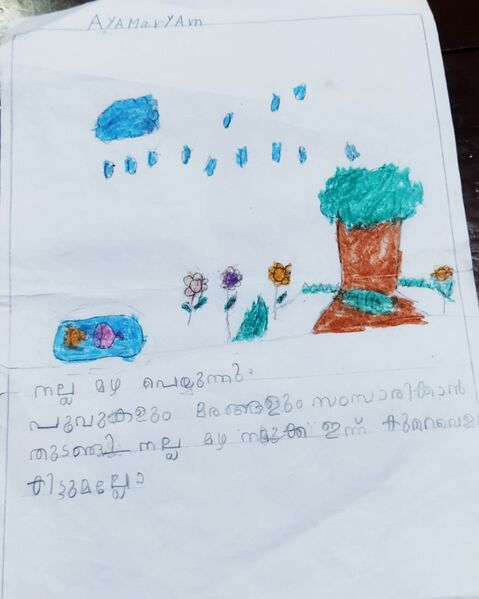 AYAMarYAm
നല്ല മഴ പെയ്യുന്നു.
പൂവുകളും മരങ്ങളും സംസാരിക്കാൻ
തുടങ്ങി നല്ല മഴ നമുക്ക് ഇന്ന്
കിട്ടുമല്ലോ